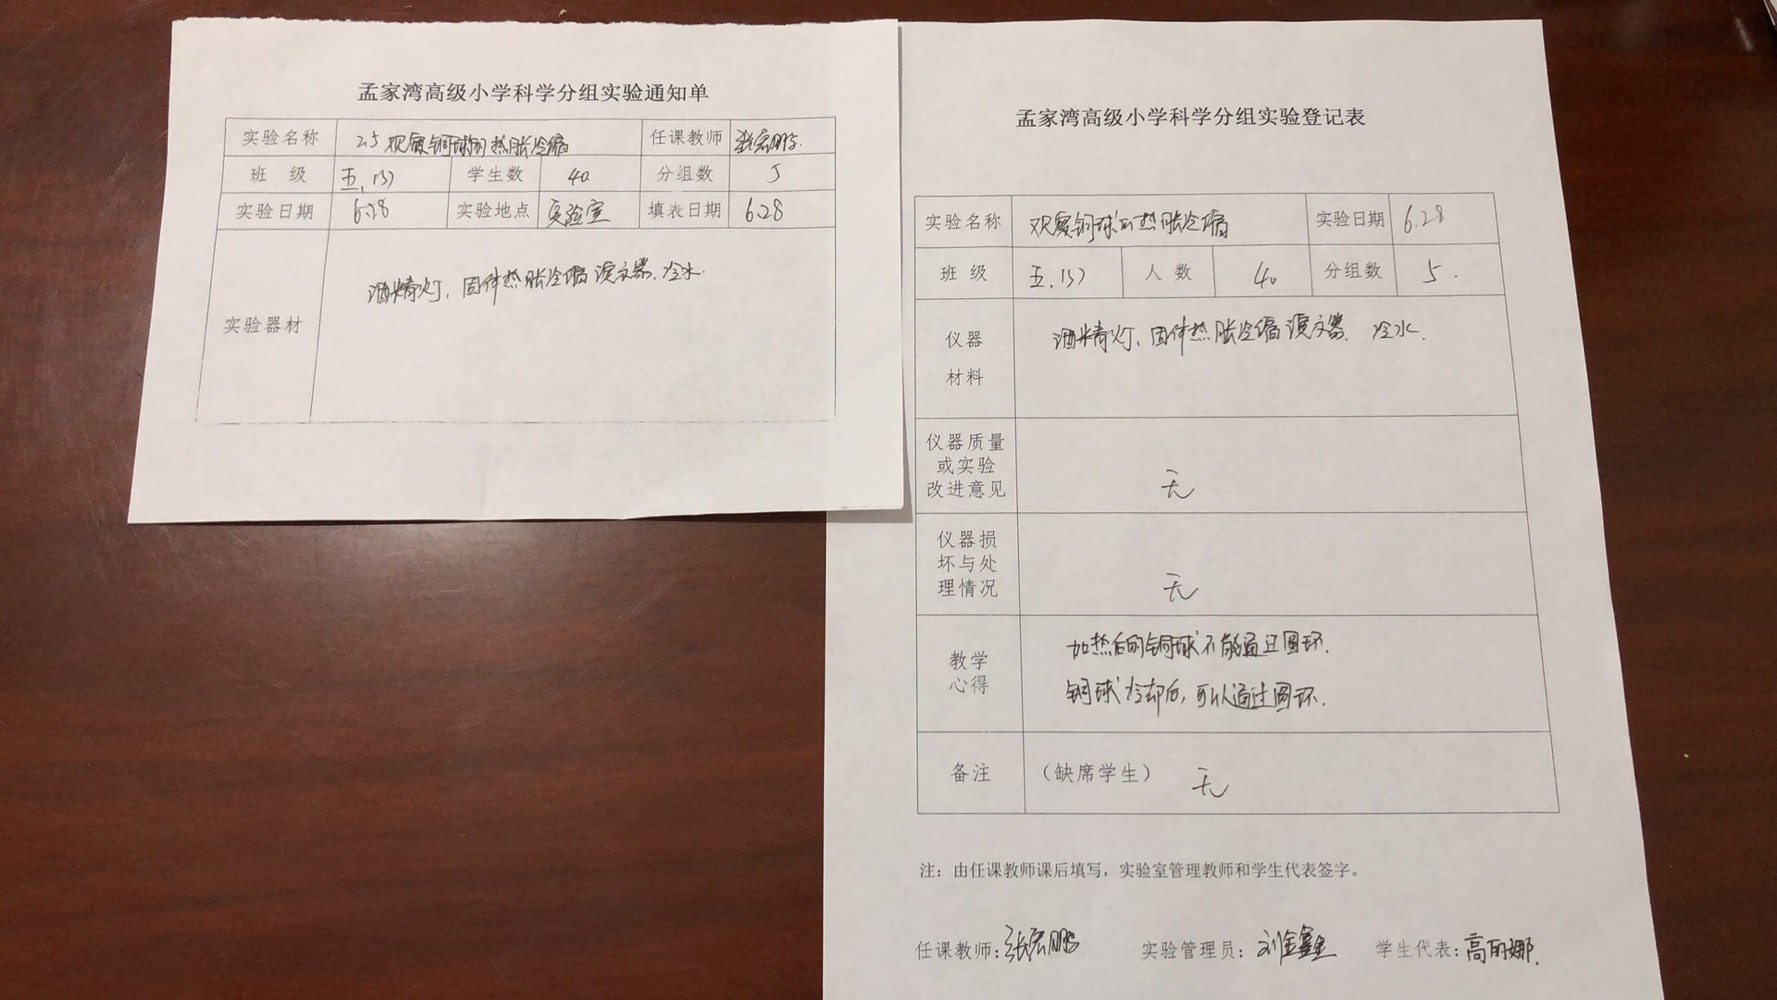 孟家湾高级小学科学分组实验通知单
实验名称 25 观察铜球的热胀冷缩 任课教师 张宏鹏
班 级 五.(3) 学生数 40 分组数 5
实验日期 6.28 实验地点 实验室 填表日期 6.28
实验器材 酒精灯、固体热胀冷缩演示器、冷水.
孟家湾高级小学科学分组实验登记表
实验名称 观察铜球的热胀冷缩 实验日期 6.28
班 级 五.(3) 人 数 40 分组数 5.
仪器
材料
酒精灯、固体热胀冷缩演示器、冷水.
仪器质量
或实验
改进意见
无
仪器损
坏与处
理情况
无
教学
心得
加热后的铜球不能通过圆环.
铜球冷却后,可以通过圆环.
备注 （缺席学生） 无
注：由任课教师课后填写，实验室管理教师和学生代表签字。
任课教师：张宏鹏 实验管理员：刘金鑫 学生代表：高丽娜.